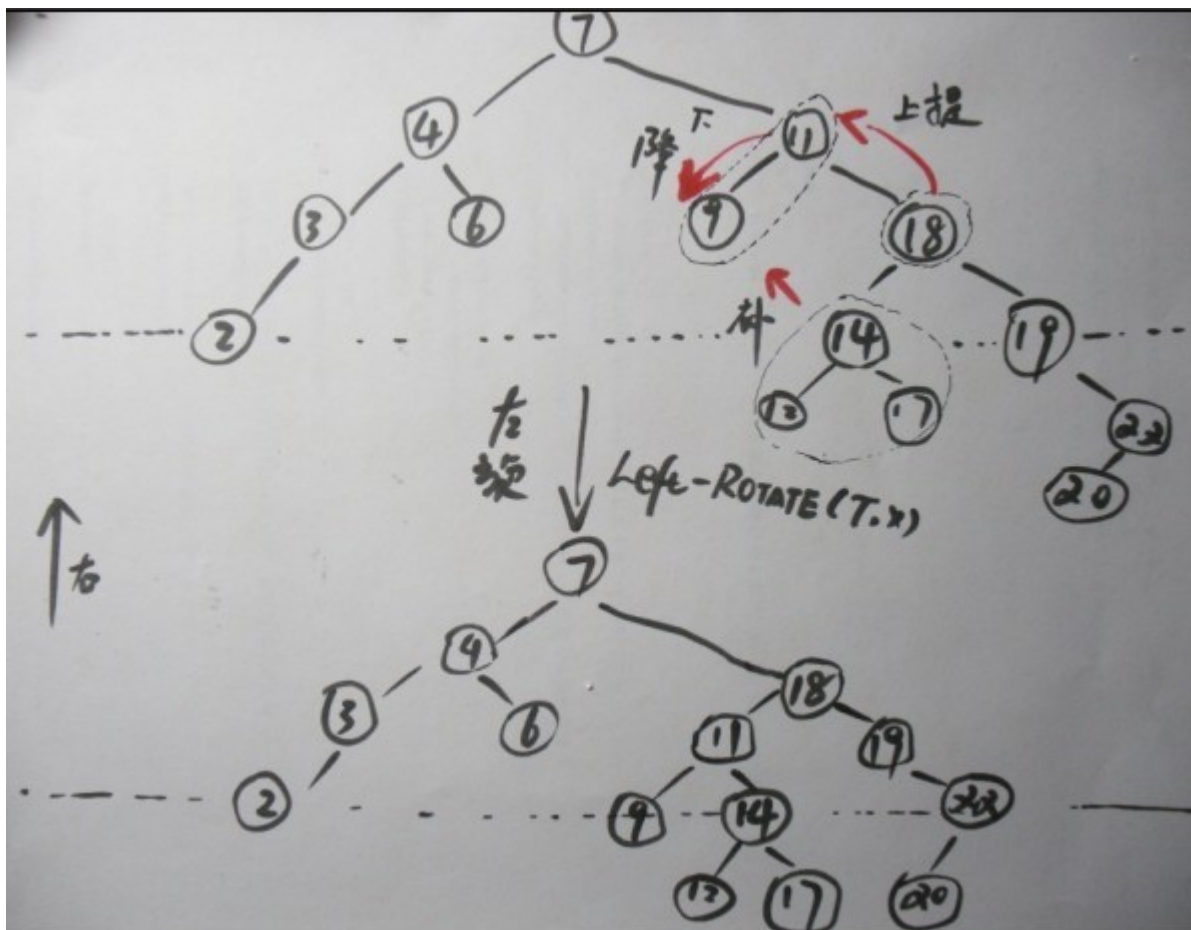 7
4 下 11 上提
降
3 6 9 18
2 补 14 19
12 17 22
左旋 Left-ROTATE(T.x) 20
右
7
4 18
3 6 11 19
2 9 14 22
12 17 20